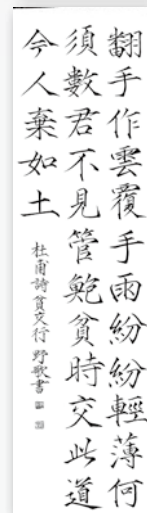 翻手作雲覆手雨紛紛輕薄何
須數君不見管鮑貧時交此道
今人棄如土
杜甫詩貧交行 野歌書